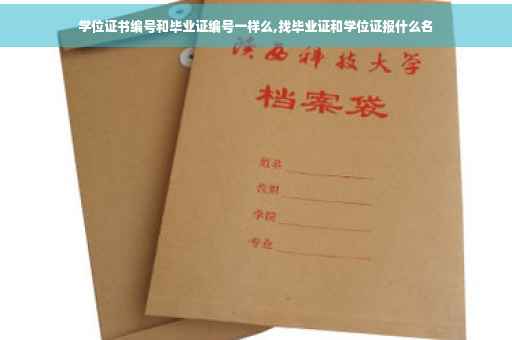 学位证书编号和毕业证编号一样么,找毕业证和学位证报什么名
陕西科技大学
档案袋
姓名
学院
专业